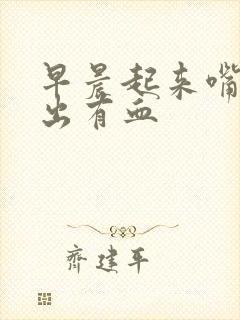 早晨起来嘴
出有血
齐建平